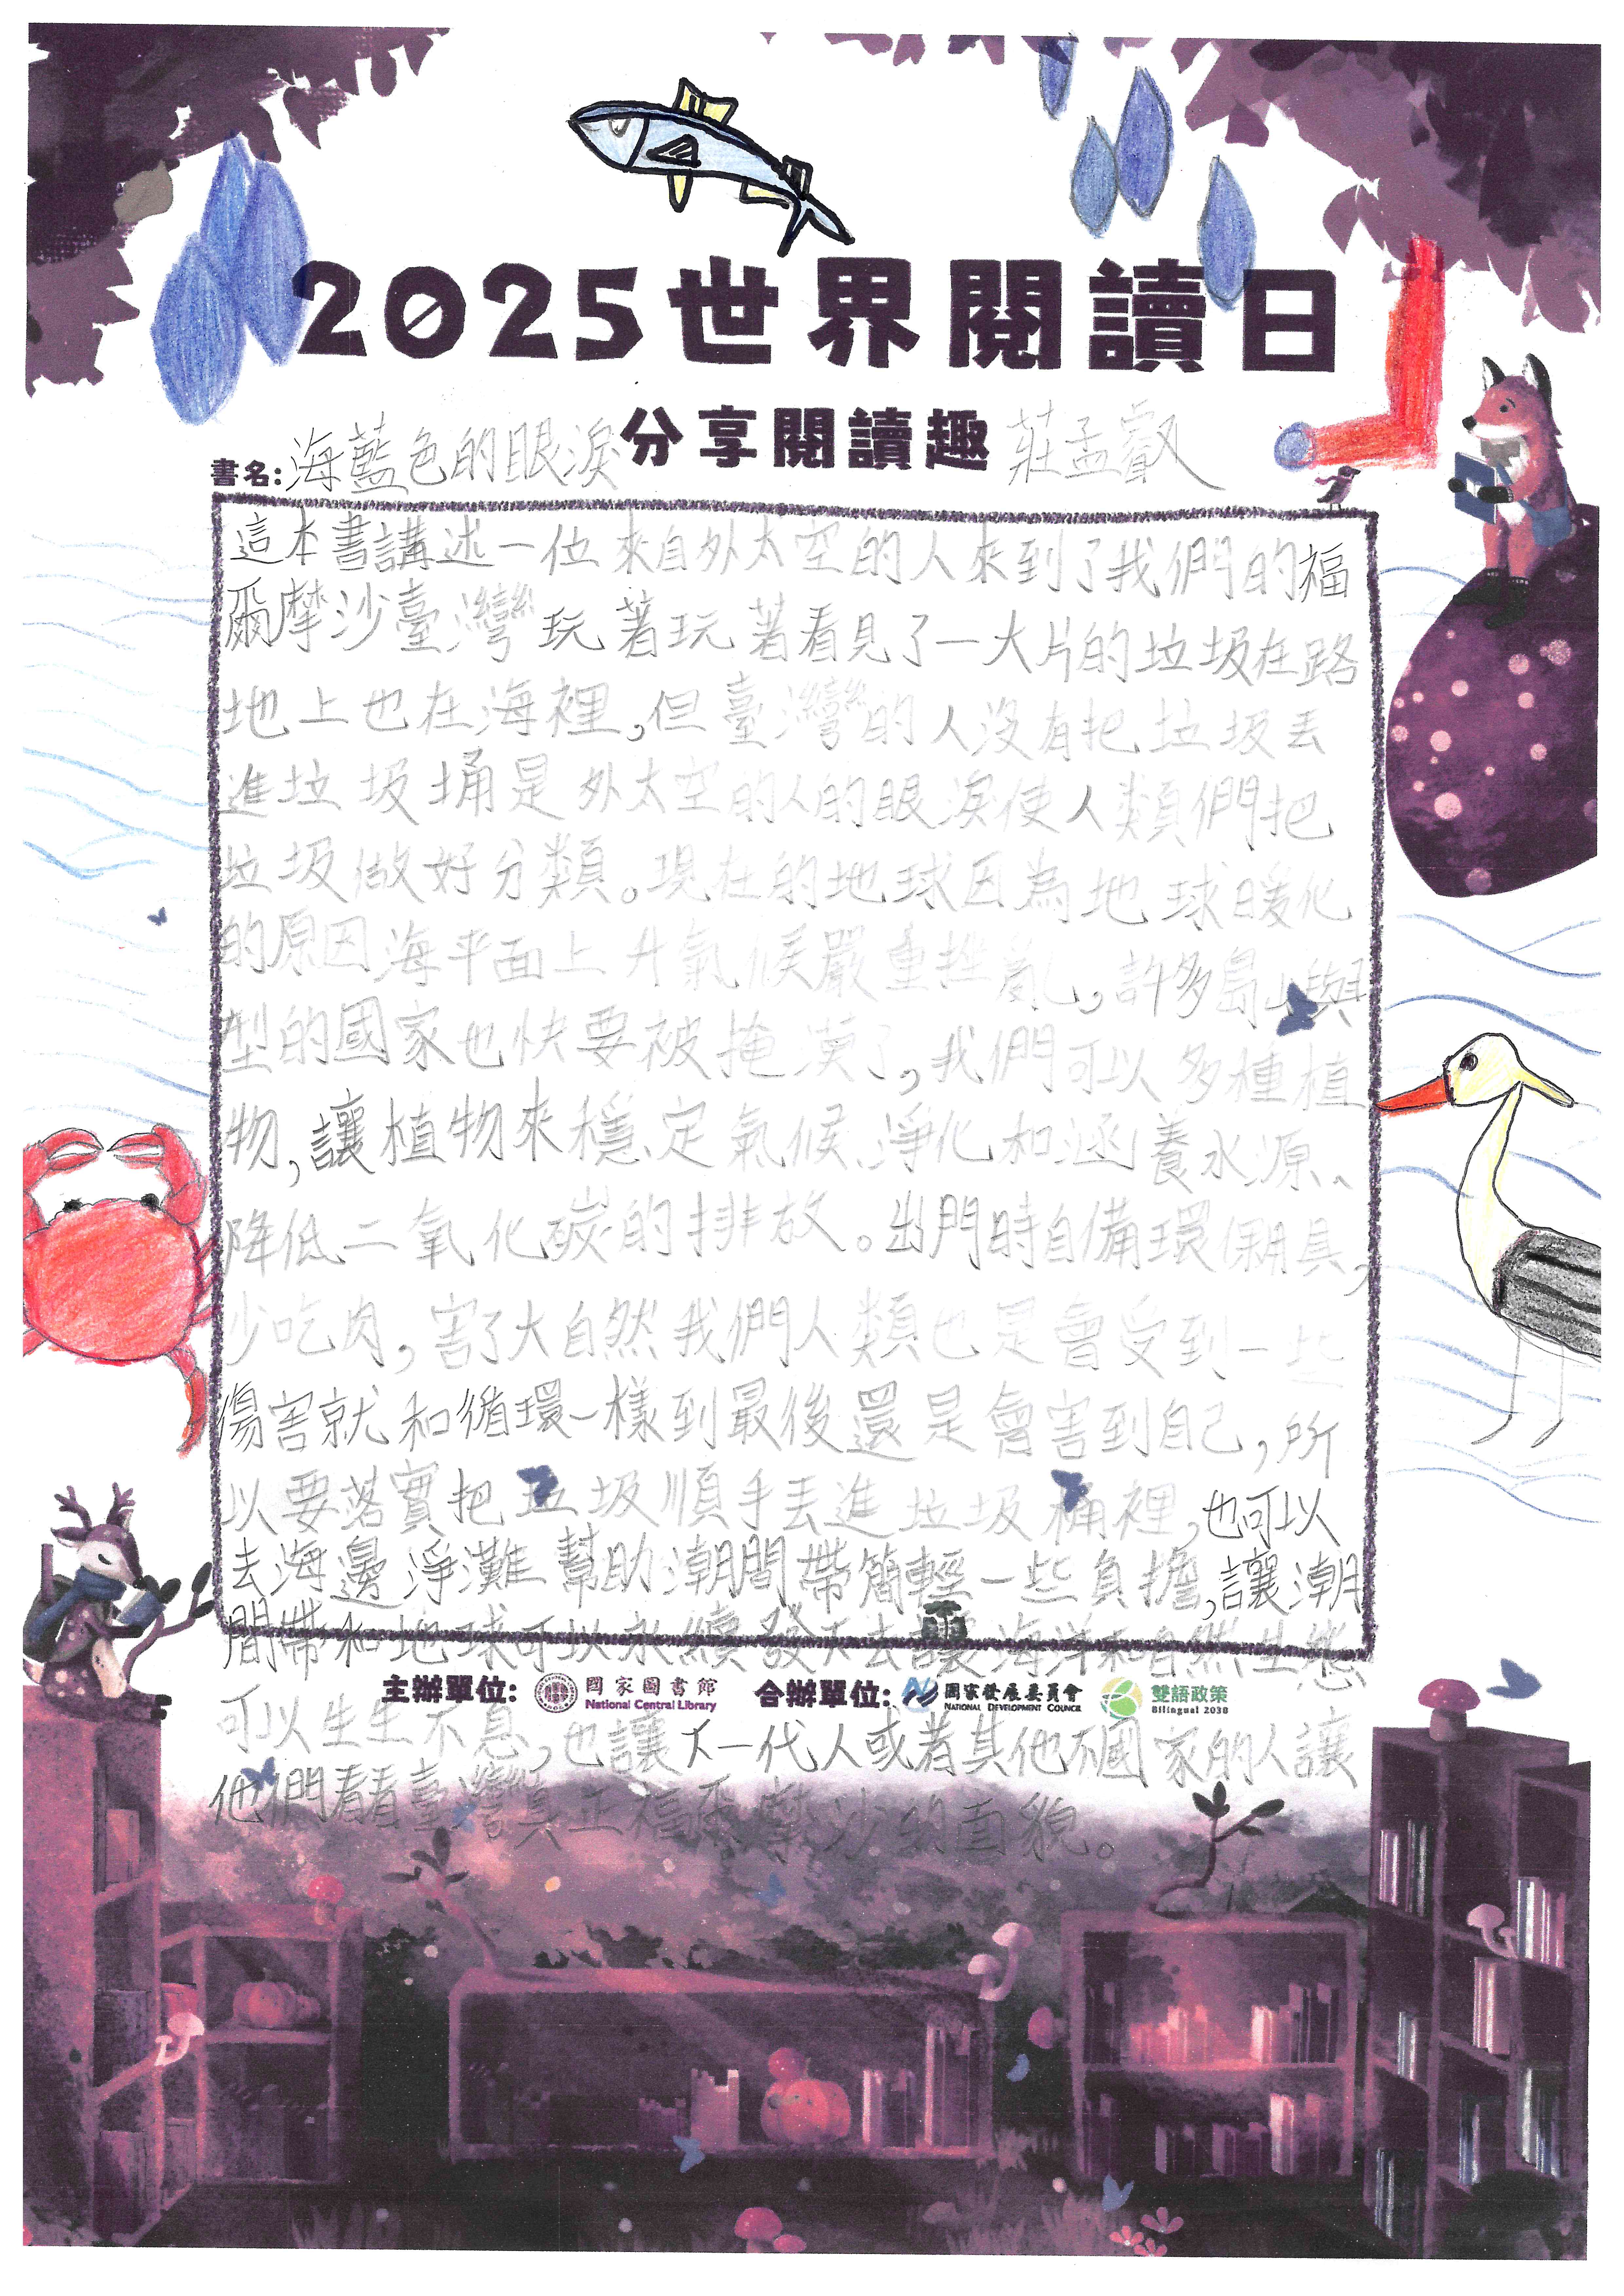 2025世界閱讀日
分享閱讀趣
書名:海藍色的眼淚 莊孟叡
這本書講述一位來自外太空的人來到了我們的福
爾摩沙臺灣玩著玩著看見了一大片的垃圾在路
地上也在海裡,但臺灣的人沒有把垃圾丟
進垃圾桶是外太空的人的眼淚使人類們把
垃圾做好分類。現在的地球因為地球暖化
的原因海平面上升氣候嚴重挫亂,許多島嶼
型的國家也快要被掩漠了,我們可以多種植
物,讓植物來穩定氣候、淨化和涵養水源、
降低二氧化碳的排放。出門時自備環保用具,
少吃肉,害了大自然我們人類也是會受到一些
傷害就和循環一樣到最後還是會害到自己,所
以要落實把垃圾順手丟進垃圾桶裡,也可以
去海邊淨灘幫助潮間帶簡輕一些負擔,讓潮
間帶和地球可以永續發下去讓海洋和自然生態
可以生生不息,也讓下一代人或者其他不國家的人讓
他們看看臺灣真正福爾摩沙的面貌。
主辦單位: 國家圖書館 National Central Library 合辦單位: 國家發展委員會 NATIONAL DEVELOPMENT COUNCIL 雙語政策 Bilingual 2030